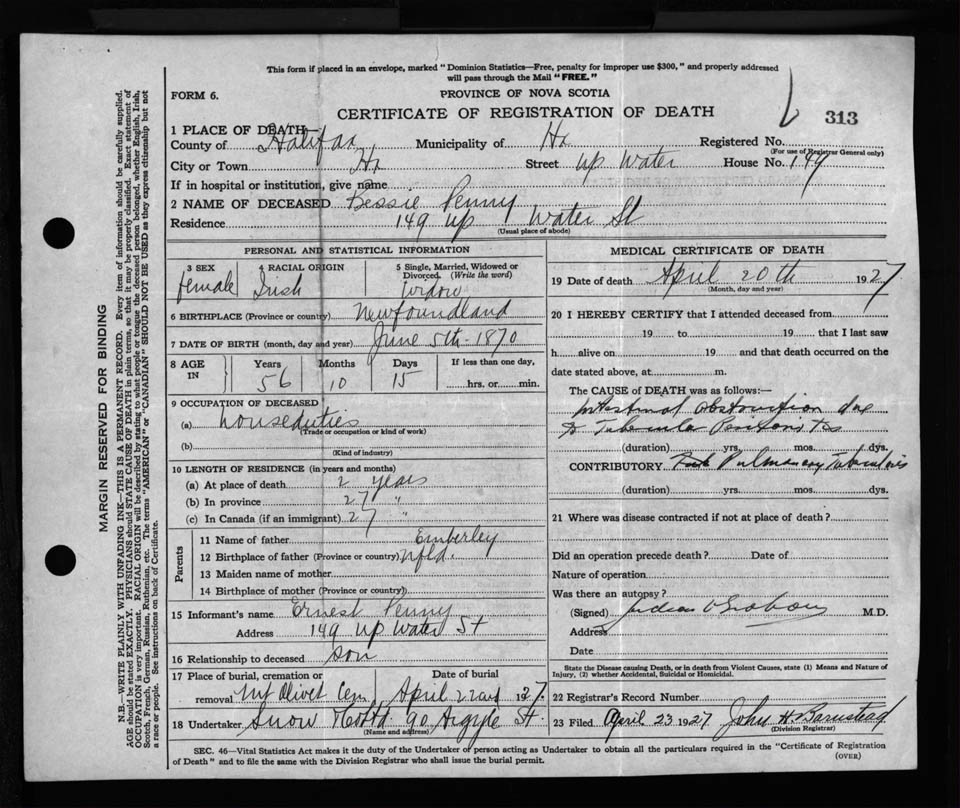 This form if placed in an envelope, marked "Dominion Statistics—Free, penalty for improper use $300," and properly addressed
will pass through the Mail "FREE."
FORM 6.
PROVINCE OF NOVA SCOTIA
CERTIFICATE OF REGISTRATION OF DEATH
313
1 PLACE OF DEATH—
County of Halifax Municipality of Hx Registered No.
(For use of Registrar General only)
City or Town Hx Street Up Water House No. 149
If in hospital or institution, give name
2 NAME OF DECEASED Bessie Penny
Residence 149 Up Water St
(Usual place of abode)
PERSONAL AND STATISTICAL INFORMATION
3 SEX female
4 RACIAL ORIGIN Irish
5 Single, Married, Widowed or Divorced. (Write the word) widow
6 BIRTHPLACE (Province or country) Newfoundland
7 DATE OF BIRTH (month, day and year) June 5th-1870
8 AGE IN Years 56 Months 10 Days 15 If less than one day, hrs. or min.
9 OCCUPATION OF DECEASED
(a) houseduties
(Trade or occupation or kind of work)
(b)
(Kind of industry)
10 LENGTH OF RESIDENCE (in years and months)
(a) At place of death 2 years
(b) In province 27 "
(c) In Canada (if an immigrant) 27 "
Parents
11 Name of father Emberley
12 Birthplace of father (Province or country) Nfld.
13 Maiden name of mother
14 Birthplace of mother (Province or country)
15 Informant's name Ernest Penny
Address 149 Up Water St
16 Relationship to deceased son
17 Place of burial, cremation or removal Mt Olivet Cem Date of burial April 22nd 1927.
18 Undertaker Snow & Co Ltd. 90 Argyle St.
(Name and address)
MEDICAL CERTIFICATE OF DEATH
19 Date of death April 20th 1927
(Month, day and year)
20 I HEREBY CERTIFY that I attended deceased from
19 to 19, that I last saw
h alive on 19 and that death occurred on the
date stated above, at m.
The CAUSE of DEATH was as follows:—
Intestinal Obstruction due
to Tubercular Peritonitis
(duration) yrs. mos. dys.
CONTRIBUTORY Pulmonary Tuberculosis
(duration) yrs. mos. dys.
21 Where was disease contracted if not at place of death?
Did an operation precede death? Date of
Nature of operation
Was there an autopsy?
(Signed) M.D.
Address
Date
State the Disease causing Death, or in death from Violent Causes, state (1) Means and Nature of
Injury, (2) whether Accidental, Suicidal or Homicidal.
22 Registrar's Record Number
23 Filed April 23 1927 John H Barnstead
(Division Registrar)
SEC. 46—Vital Statistics Act makes it the duty of the Undertaker or person acting as Undertaker to obtain all the particulars required in the "Certificate of Registration
of Death" and to file the same with the Division Registrar who shall issue the burial permit.
(OVER)
MARGIN RESERVED FOR BINDING
N.B.—WRITE PLAINLY WITH UNFADING INK—THIS IS A PERMANENT RECORD. Every item of information should be carefully supplied.
AGE should be stated EXACTLY. PHYSICIANS should STATE CAUSE OF DEATH in plain terms, so that it may be properly classified. Exact statement of
OCCUPATION is very important. RACIAL ORIGIN will be described by stating to what people or tongue the deceased person belonged, whether English, Irish,
Scotch, French, German, Russian, Ruthenian, etc. The terms "AMERICAN" or "CANADIAN" SHOULD NOT BE USED as they express citizenship but not
a race or people. See instructions on back of Certificate.